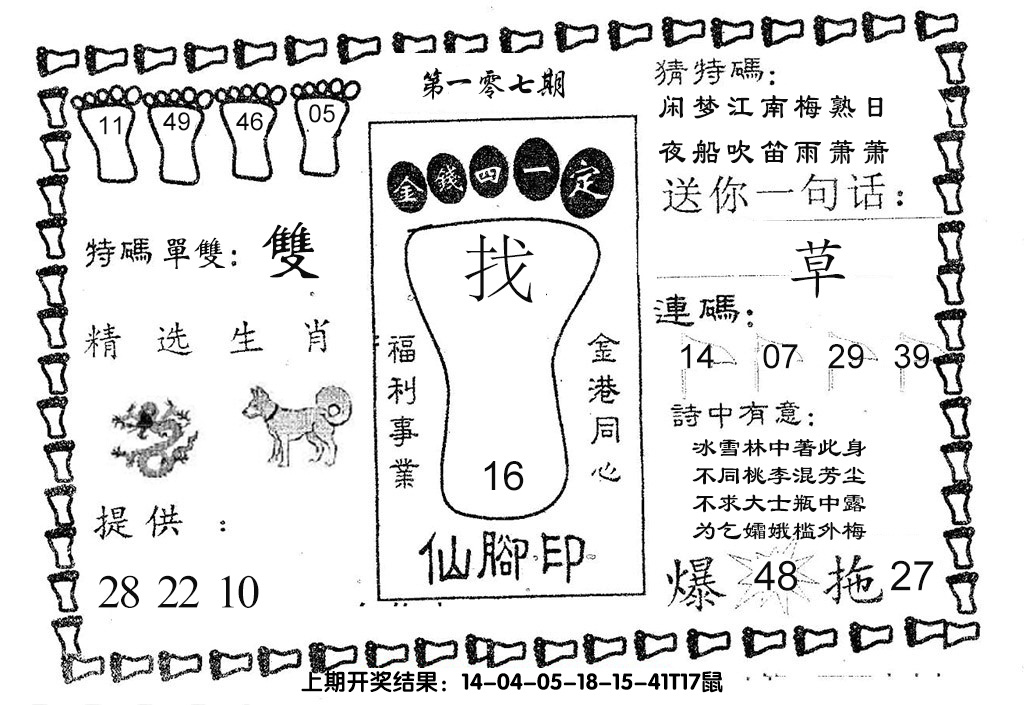 第一零七期
11 49 46 05
特碼單雙：雙
精选生肖
提供：
28 22 10
金錢四一定
找
福利事業
金港同心
16
仙腳印
猜特碼：
闲梦江南梅熟日
夜船吹笛雨萧萧
送你一句话：
草
連碼：
14 07 29 39
詩中有意：
冰雪林中著此身
不同桃李混芳尘
不求大士瓶中露
为乞孀娥槛外梅
爆 48 拖 27
上期开奖结果：14-04-05-18-15-41T17鼠